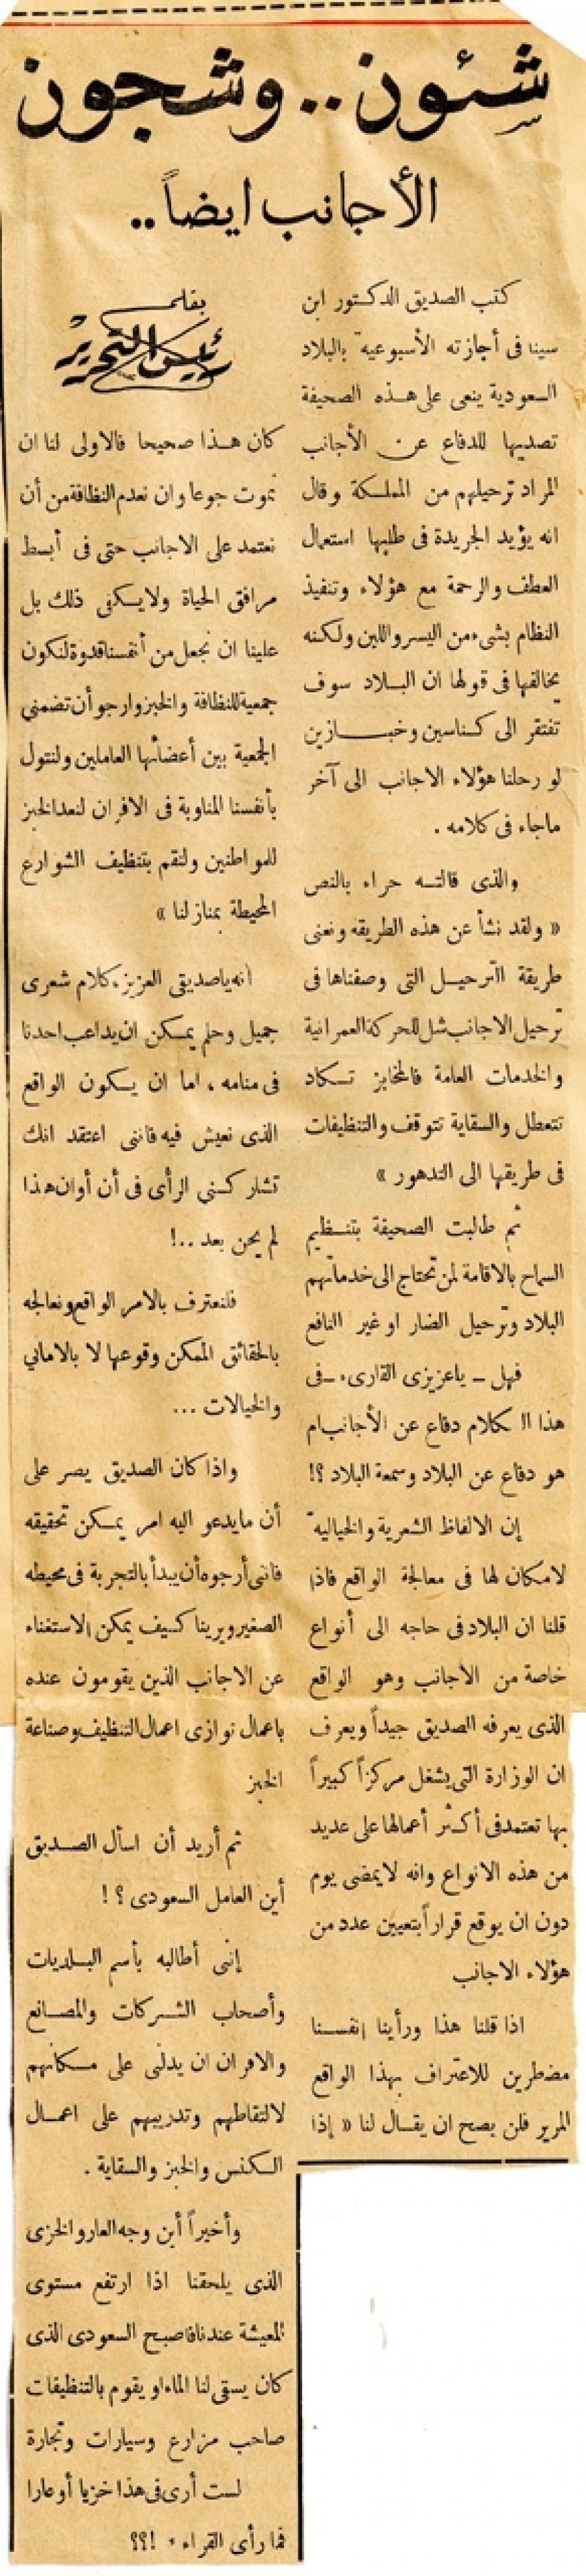 شئون.. وشجون
الأجانب ايضاً..
كتب الصديق الدكتور ابن
سينا فى أجازته الأسبوعية بالبلاد
السعودية ينعى على هذه الصحيفة
تصديها للدفاع عن الأجانب
المراد ترحيلهم من المملكة وقال
انه يؤيد الجريدة فى طلبها استعمال
العطف والرحمة مع هؤلاء وتنفيذ
النظام بشىء من اليسر واللين ولكنه
يخالفها فى قولها ان البلاد سوف
تفتقر الى كناسين وخبازين
لو رحلنا هؤلاء الاجانب الى آخر
ماجاء فى كلامه .
والذى قالته حراء بالنص
« ولقد نشأ عن هذه الطريقة ونعنى
طريقة الترحيل التى وصفناها فى
ترحيل الاجانب شل للحركة العمرانية
والخدمات العامة فالمخابز تكاد
تتعطل والسقاية تتوقف والتنظيفات
فى طريقها الى التدهور »
ثم طالبت الصحيفة بتنظيم
السماح بالاقامة لمن تحتاج الى خدماتهم
البلاد وترحيل الضار او غير النافع
فهل ـ ياعزيزى القارىء ـ فى
هذا الكلام دفاع عن الأجانب ام
هو دفاع عن البلاد وسمعة البلاد ؟!
إن الالفاظ الشعرية والخيالية
لامكان لها فى معالجة الواقع فاذا
قلنا ان البلاد فى حاجه الى أنواع
خاصة من الأجانب وهو الواقع
الذى يعرفه الصديق جيداً ويعرف
ان الوزارة التى يشغل مركزاً كبيراً
بها تعتمد فى أكثر أعمالها على عديد
من هذه الانواع وانه لا يمضى يوم
دون ان يوقع قراراً بتعيين عدد من
هؤلاء الاجانب
اذا قلنا هذا ورأينا انفسنا
مضطرين للاعتراف بهذا الواقع
المرير فلن يصح ان يقال لنا « إذا
بقلم
رئيس التحرير
كان هذا صحيحا فالاولى لنا ان
نموت جوعا وان نعدم النظافة من أن
نعتمد على الاجانب حتى فى أبسط
مرافق الحياة ولا يكفى ذلك بل
علينا ان نجعل من أنفسنا قدوة لنكون
جمعية للنظافة والخبز وارجو أن تضمنى
الجمعية بين أعضائها العاملين ولنتول
بأنفسنا المناوبة فى الافران لنعد الخبز
للمواطنين ولنقم بتنظيف الشوارع
المحيطة بمنازلنا »
انه ياصديقى العزيز، كلام شعرى
جميل وحلم يمكن ان يداعب احدنا
فى منامه ، اما ان يكون الواقع
الذى نعيش فيه فاننى اعتقد انك
تشاركني الرأى فى أن أوان هذا
لم يحن بعد ..!
فلنعترف بالامر الواقع ونعالجه
بالحقائق الممكن وقوعها لا بالاماني
والخيالات ...
واذا كان الصديق يصر على
أن مايدعو اليه امر يمكن تحقيقه
فانى أرجوه أن يبدأ بالتجربة فى محيطه
الصغير ويرينا كيف يمكن الاستغناء
عن الاجانب الذين يقومون عنده
باعمال توازى اعمال التنظيف وصناعة
الخبز
ثم أريد أن اسأل الصديق
أين العامل السعودى ؟ !
إننى أطالبه بأسم البلديات
وأصحاب الشركات والمصانع
والافران ان يدلنى على مكانهم
لالتقاطهم وتدريبهم على اعمال
الكنس والخبز والسقاية .
وأخيراً أين وجه العار والخزى
الذى يلحقنا اذا ارتفع مستوى
المعيشة عندنا فاصبح السعودى الذى
كان يسقى لنا الماء او يقوم بالتنظيفات
صاحب مزارع وسيارات وتجارة
لست أرى فى هذا خزيا أو عارا
فما رأى القراء ، !؟؟